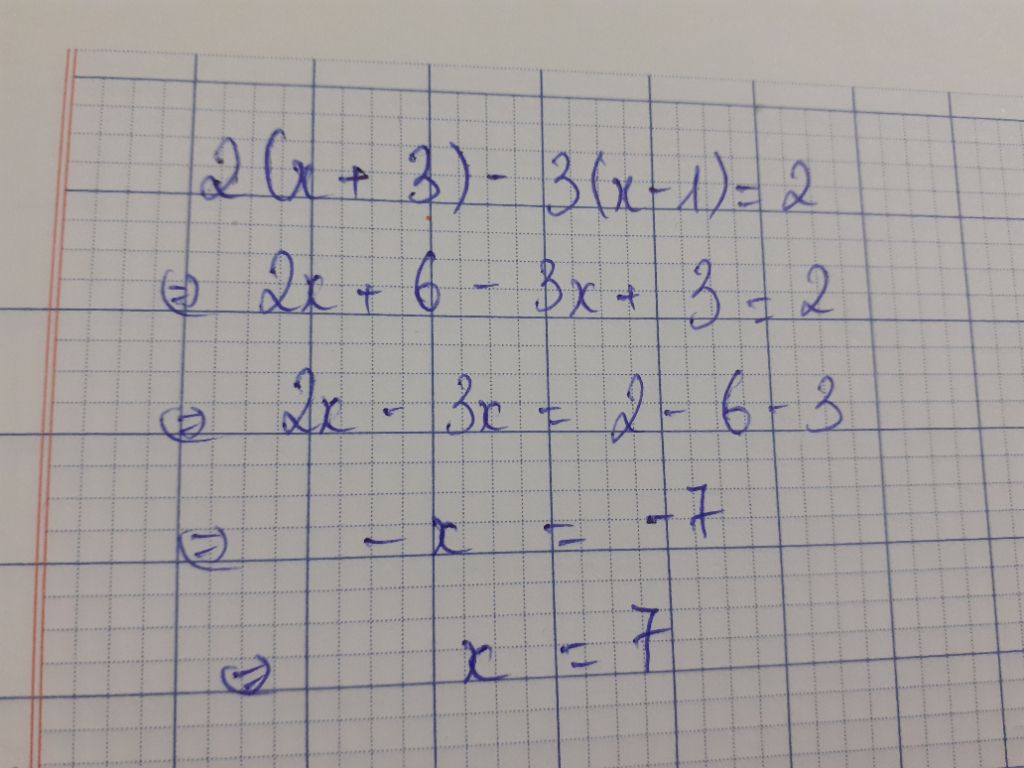 2(x + 3) - 3(x - 1) = 2
⇔ 2x + 6 - 3x + 3 = 2
⇔ 2x - 3x = 2 - 6 - 3
⇔ - x = - 7
⇔ x = 7